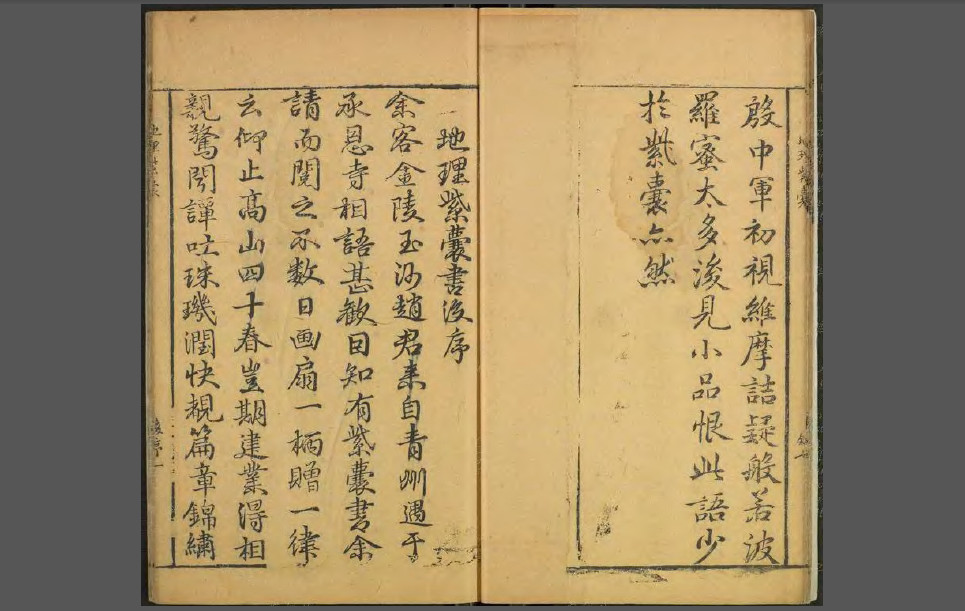 殷中軍初視維摩詰疑般若波
羅蜜太多後見小品恨此語少
於紫囊亦然
地理紫囊書後序
余客金陵玉沙趙君來自青州遇于
承恩寺相語甚歡因知有紫囊書余
請而閱之不數日画扇一柄贈一律
云仰止高山四十春豈期建業得相
親驚閱譚吐珠璣潤快覩篇章錦繡